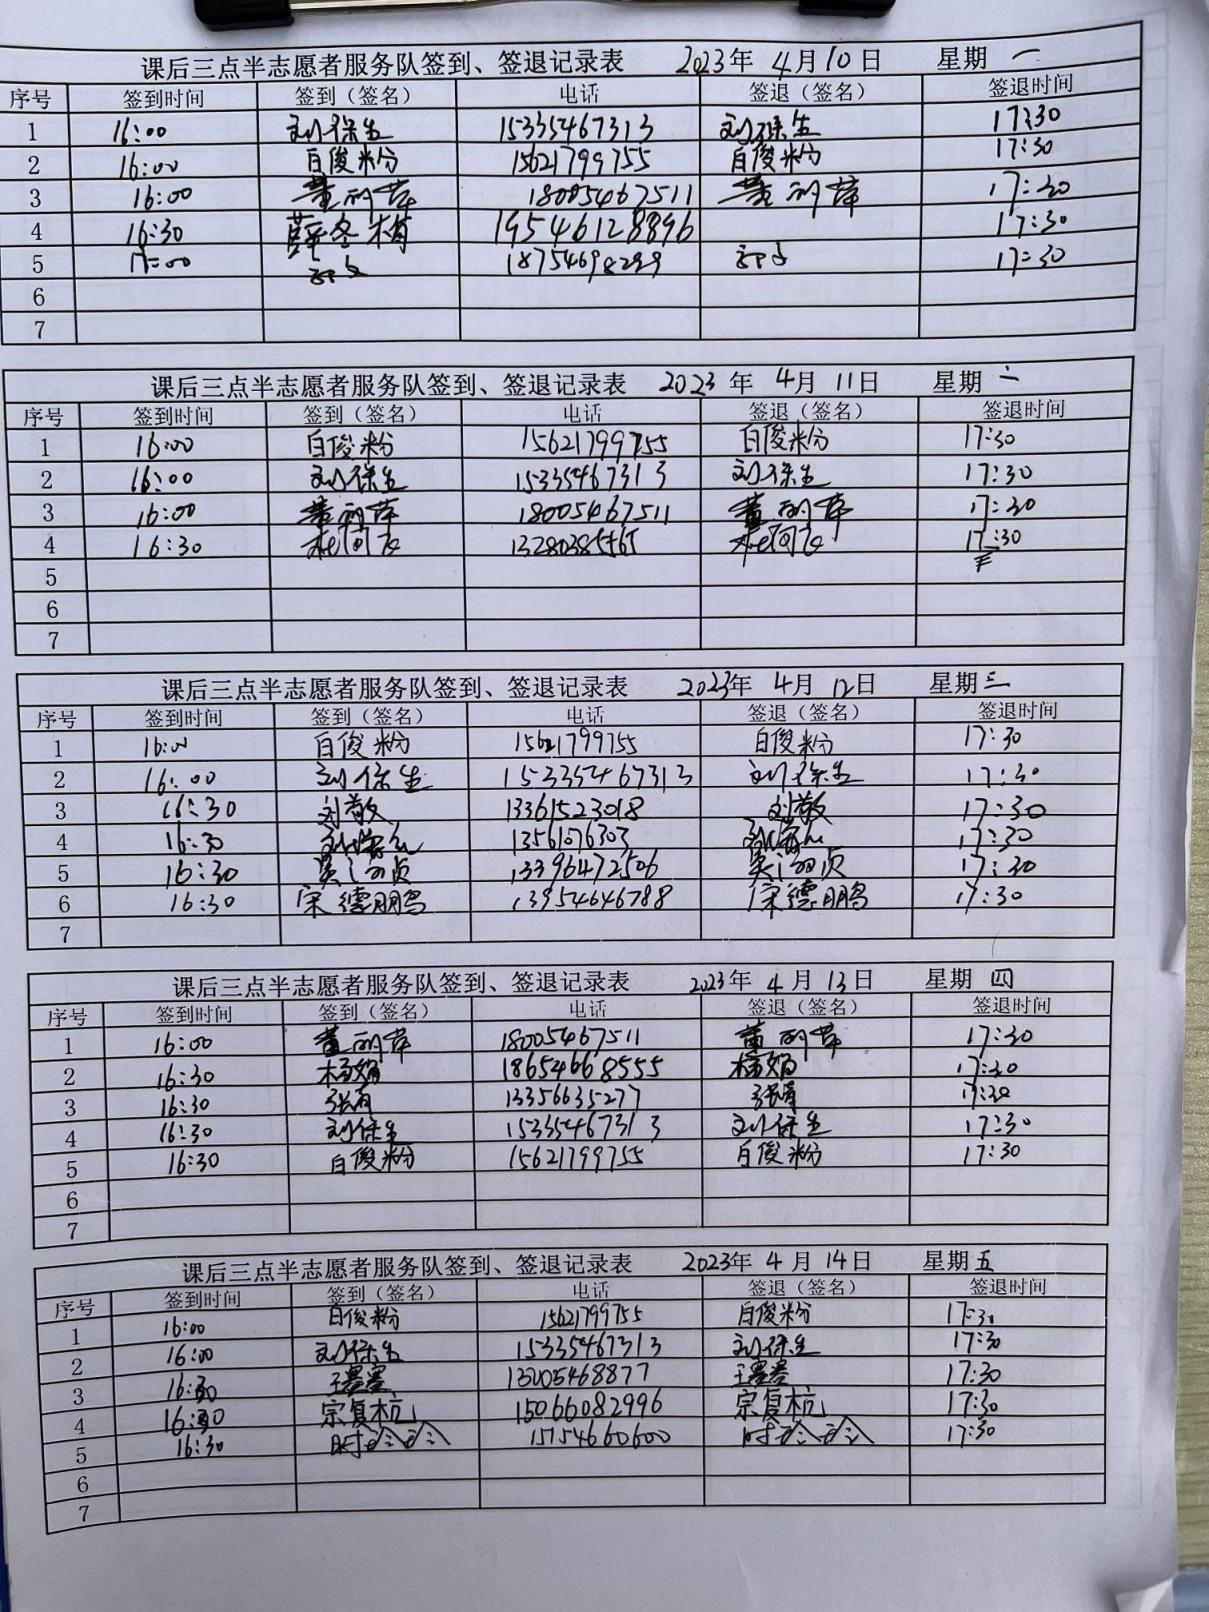 课后三点半志愿者服务队签到、签退记录表 2023年 4月10日 星期 一
序号 签到时间 签到（签名） 电话 签退（签名） 签退时间
1 16:00 刘保生 15335467313 刘保生 17:30
2 16:00 白俊粉 15621799755 白俊粉 17:30
3 16:00 董丽萍 18005467511 董丽萍 17:30
4 16:30 薛冬梅 19546128896 17:30
5 17:00 18754698299 17:30
6
7
课后三点半志愿者服务队签到、签退记录表 2023 年 4月 11日 星期 二
序号 签到时间 签到（签名） 电话 签退（签名） 签退时间
1 16:00 白俊粉 15621799755 白俊粉 17:30
2 16:00 刘保生 15335467313 刘保生 17:30
3 16:00 董丽萍 18005467511 董丽萍 17:30
4 16:30 17:30
5
6
7
课后三点半志愿者服务队签到、签退记录表 2023年 4月 12日 星期三
序号 签到时间 签到（签名） 电话 签退（签名） 签退时间
1 16:00 白俊粉 15621799755 白俊粉 17:30
2 16:00 刘保生 15335467313 刘保生 17:30
3 16:30 刘敬 13361523018 刘敬 17:30
4 16:30 13561076303 17:30
5 16:30 13396472506 17:30
6 16:30 宋德鹏 13954646788 宋德鹏 17:30
7
课后三点半志愿者服务队签到、签退记录表 2023年 4月 13日 星期 四
序号 签到时间 签到（签名） 电话 签退（签名） 签退时间
1 16:00 董丽萍 18005467511 董丽萍 17:30
2 16:30 杨娟 18654668555 杨娟 17:30
3 16:30 13356635277 17:30
4 16:30 刘保生 15335467313 刘保生 17:30
5 16:30 白俊粉 15621799755 白俊粉 17:30
6
7
课后三点半志愿者服务队签到、签退记录表 2023年 4月 14日 星期五
序号 签到时间 签到（签名） 电话 签退（签名） 签退时间
1 16:00 白俊粉 15621799755 白俊粉 17:30
2 16:00 刘保生 15335467313 刘保生 17:30
3 16:30 王赛赛 17:30
4 16:30 宗复杭 15066082996 宗复杭 17:30
5 16:30 时珍珍 15754660600 时珍珍 17:30
6
7